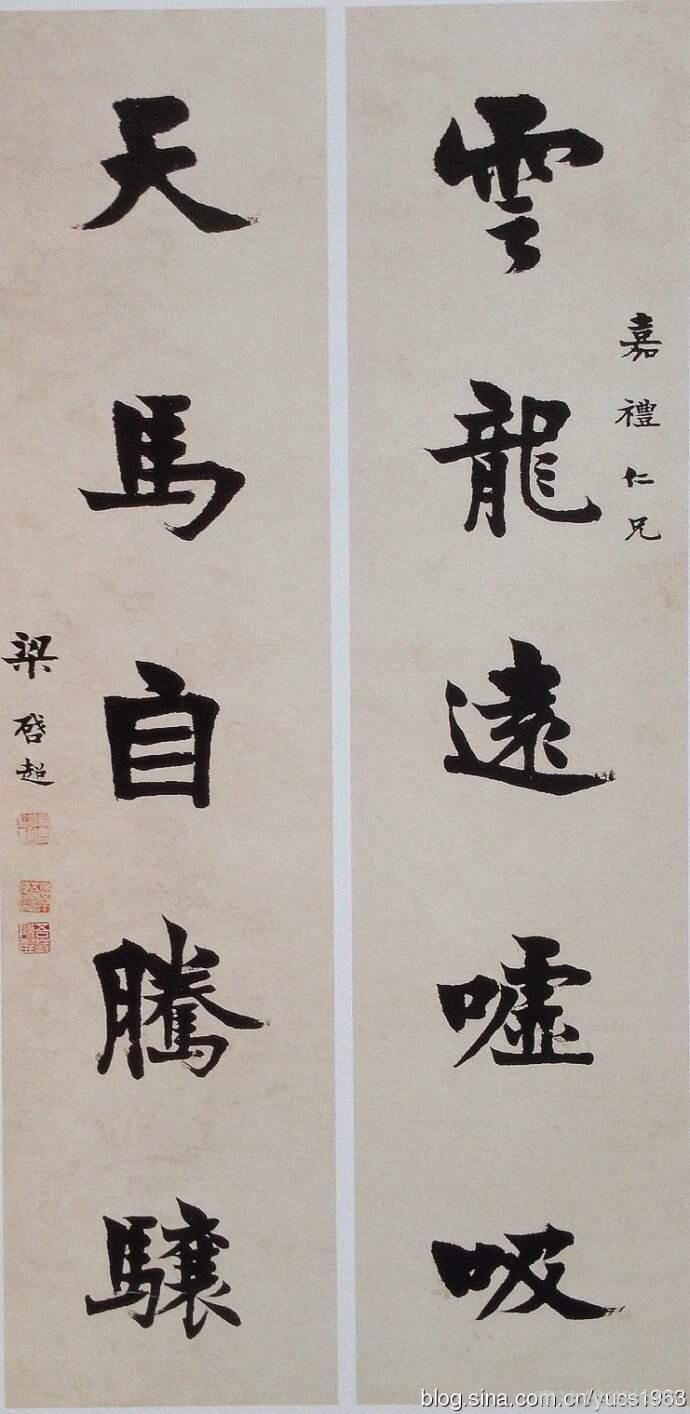 嘉禮仁兄
雲龍遠噓吸
天馬自騰驤
梁啓超
blog.sina.com.cn/yucs1963